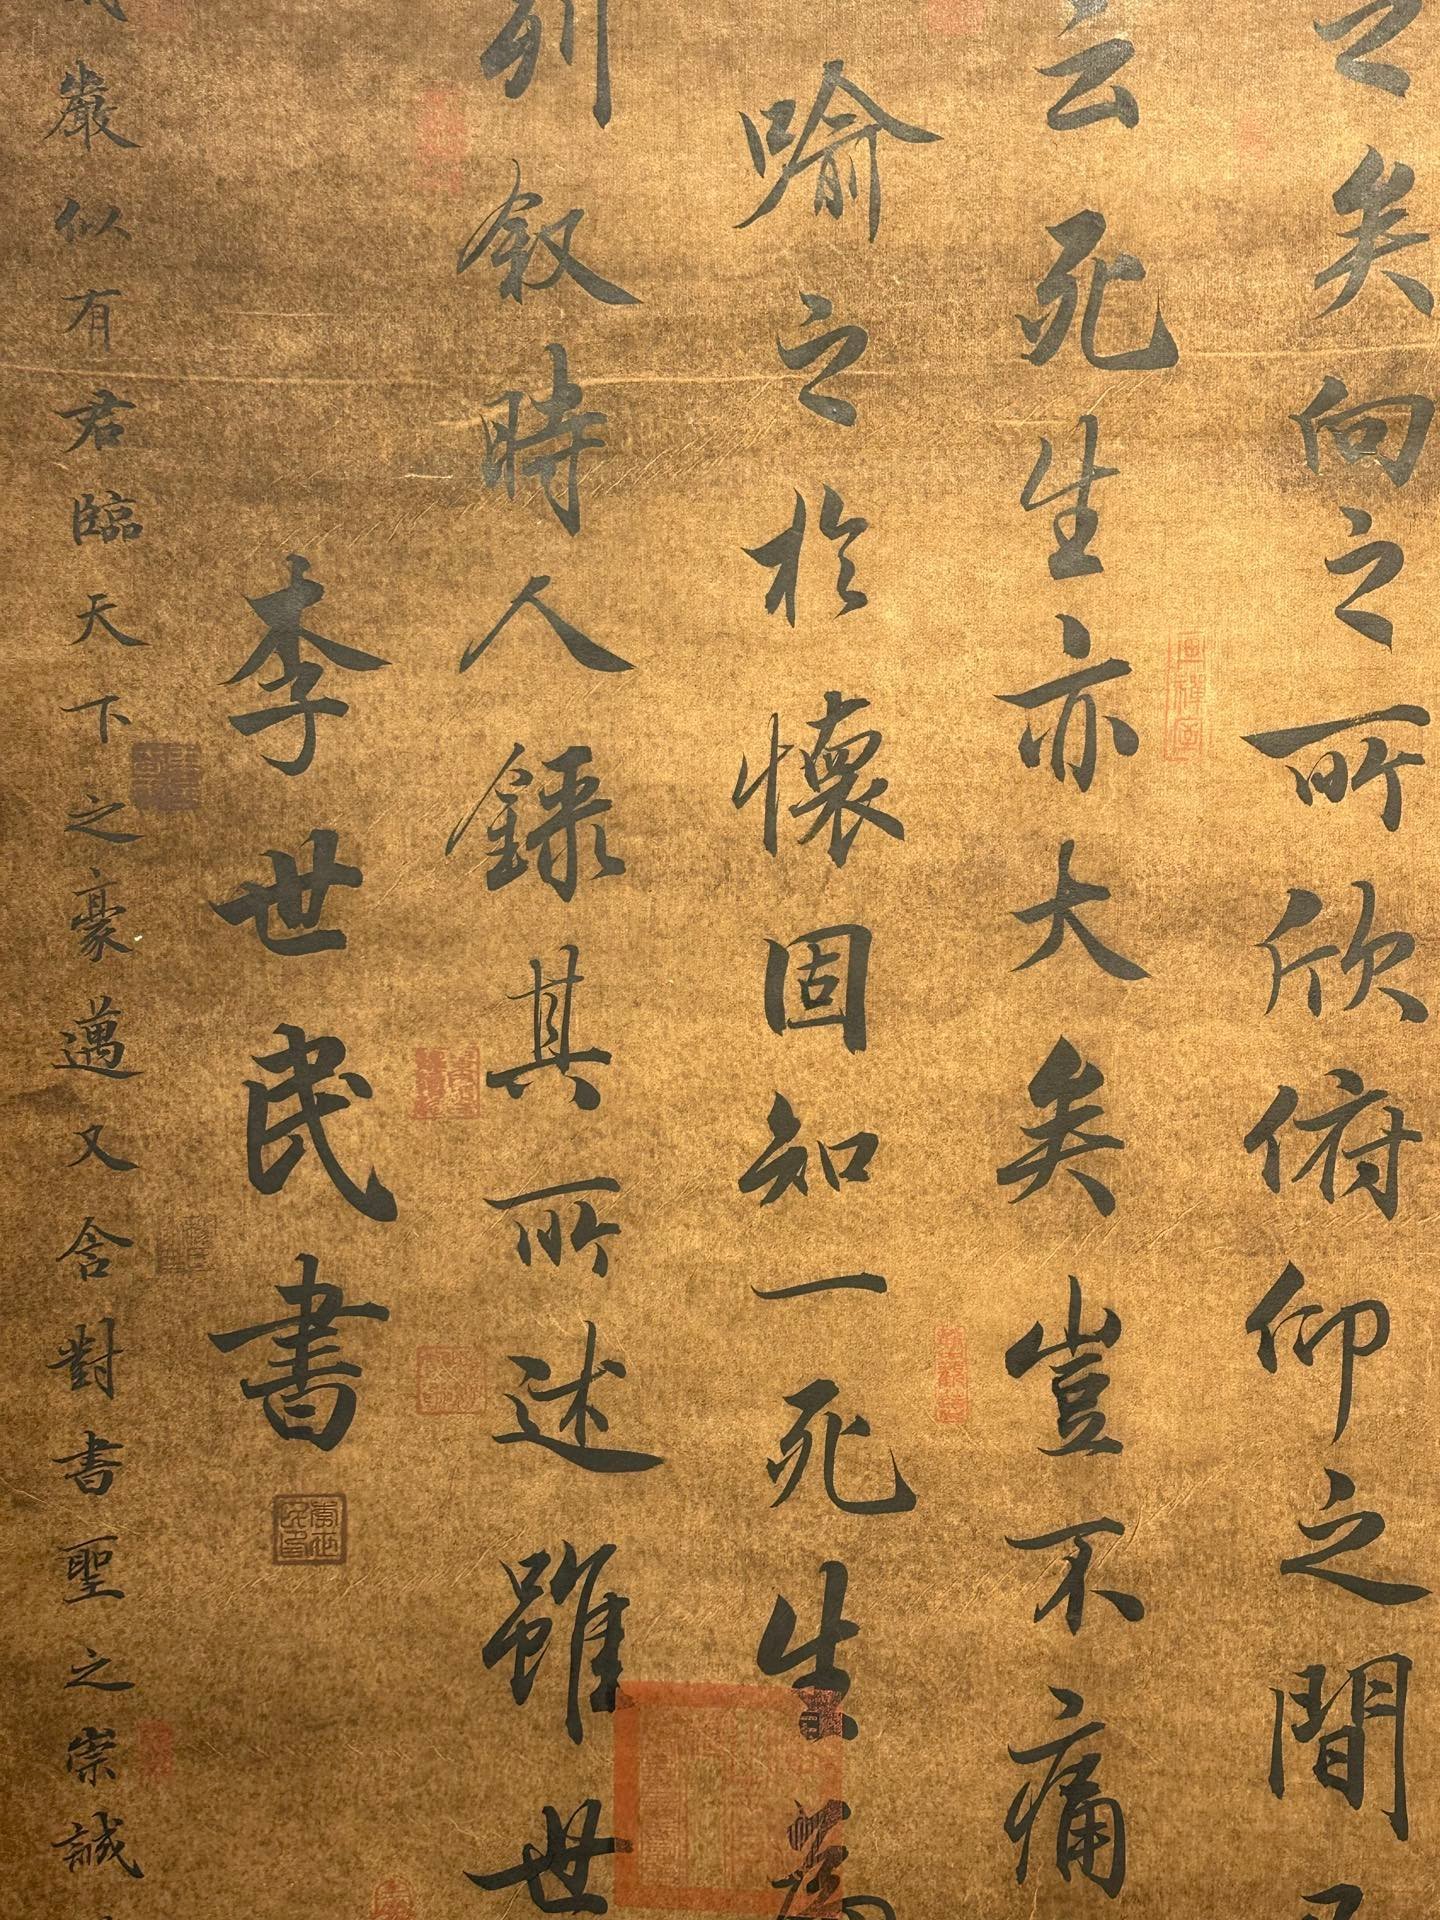 之矣向之所欣俯仰之間
云死生亦大矣豈不痛
喻之於懷固知一死生為
列叙時人錄其所述雖世
李世民書
嚴似有君臨天下之豪邁又含對書聖之崇誠